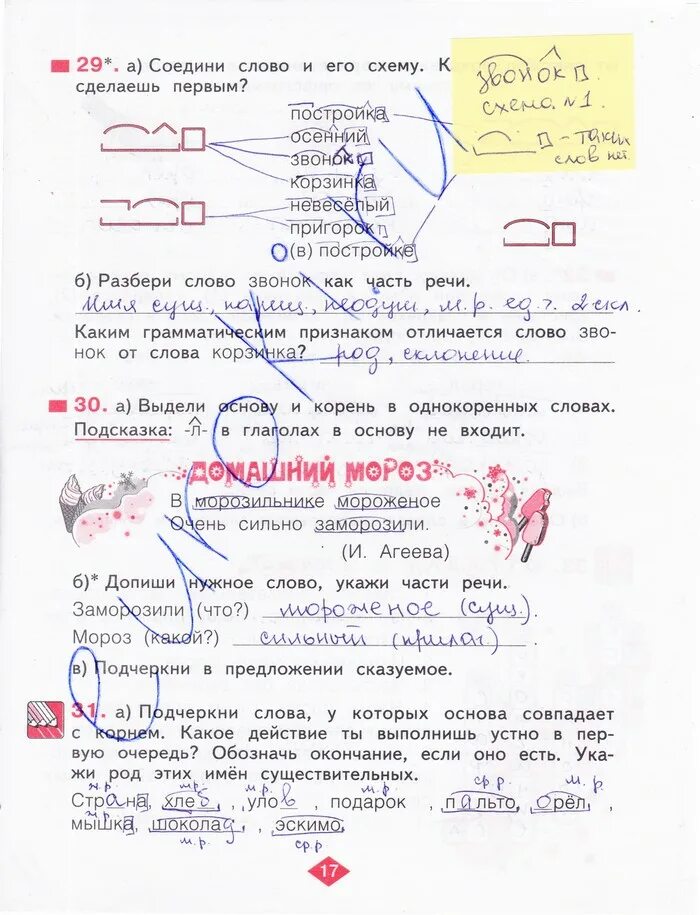 29*. а) Соедини слово и его схему. К
сделаешь первым?
звонок
схема №1.
- таких
слов нет.
постройка
осенний
звонок
корзинка
невесёлый
пригорок
(в) постройке
б) Разбери слово звонок как часть речи.
Имя сущ., нариц., неодуш., м.р. ед.ч. 2 скл.
Каким грамматическим признаком отличается слово зво-
нок от слова корзинка? род, склонение.
30. а) Выдели основу и корень в однокоренных словах.
Подсказка: -л- в глаголах в основу не входит.
ДОМАШНИЙ МОРОЗ
В морозильнике мороженое
Очень сильно заморозили.
(И. Агеева)
б)* Допиши нужное слово, укажи части речи.
Заморозили (что?) мороженое (сущ.).
Мороз (какой?) сильный (прилаг.)
в) Подчеркни в предложении сказуемое.
31. а) Подчеркни слова, у которых основа совпадает
с корнем. Какое действие ты выполнишь устно в пер-
вую очередь? Обозначь окончание, если оно есть. Ука-
жи род этих имён существительных.
ж.р. м.р. м.р. м.р. ср.р. м.р.
Страна, хлеб, улов, подарок, пальто, орёл,
ж.р.
мышка, шоколад, эскимо.
м.р. ср.р
17
е уроки ку